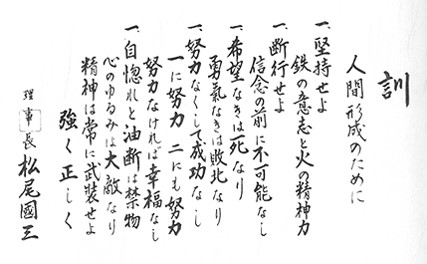 訓
人間形成のために
一、堅持せよ
鉄の意志と火の精神力
一、断行せよ
信念の前に不可能なし
一、希望なきは死なり
勇氣なきは敗北なり
一、努力なくして成功なし
一に努力 二にも努力
努力なければ幸福なし
一、自惚れと油断は禁物
心のゆるみは大敵なり
精神は常に武装せよ
強く正しく
理事長 松尾國三